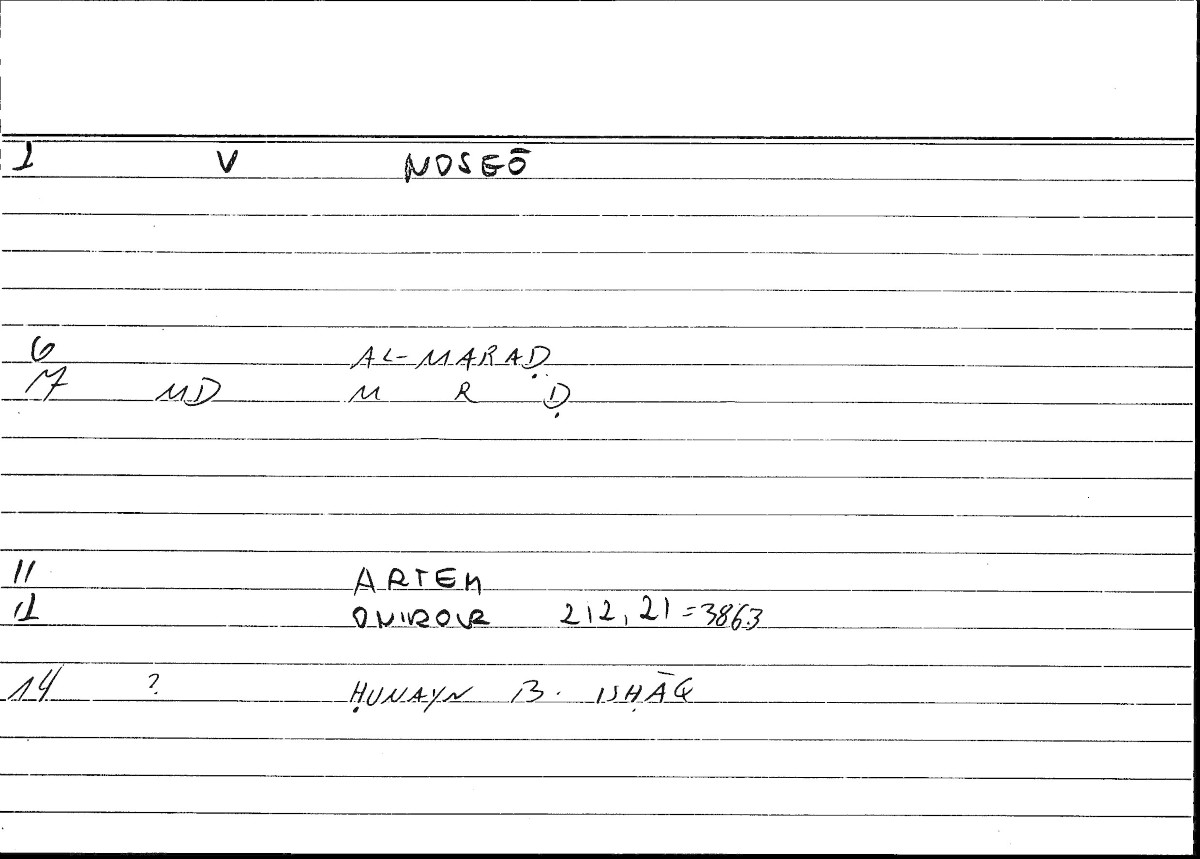 1 V NOSEŌ
6 AL-MARAḌ
7 MD M R Ḍ
11 ARTEM
12 ONIROCR 212, 21=386.3
14 ? ḤUNAYN B. ISḤĀQ